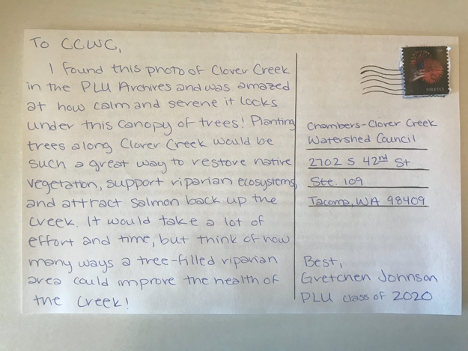 To CCWC,
I found this photo of Clover Creek
in the PLU Archives and was amazed
at how calm and serene it looks
under this canopy of trees! Planting
trees along Clover Creek would be
such a great way to restore native
vegetation, support riparian ecosystems,
and attract salmon back up the
creek. It would take a lot of
effort and time, but think of how
many ways a tree-filled riparian
area could improve the health of
the Creek!
Chambers-Clover Creek
Watershed Council
2702 S 42nd St
Ste. 109
Tacoma, WA 98409
Best,
Gretchen Johnson
PLU class of 2020